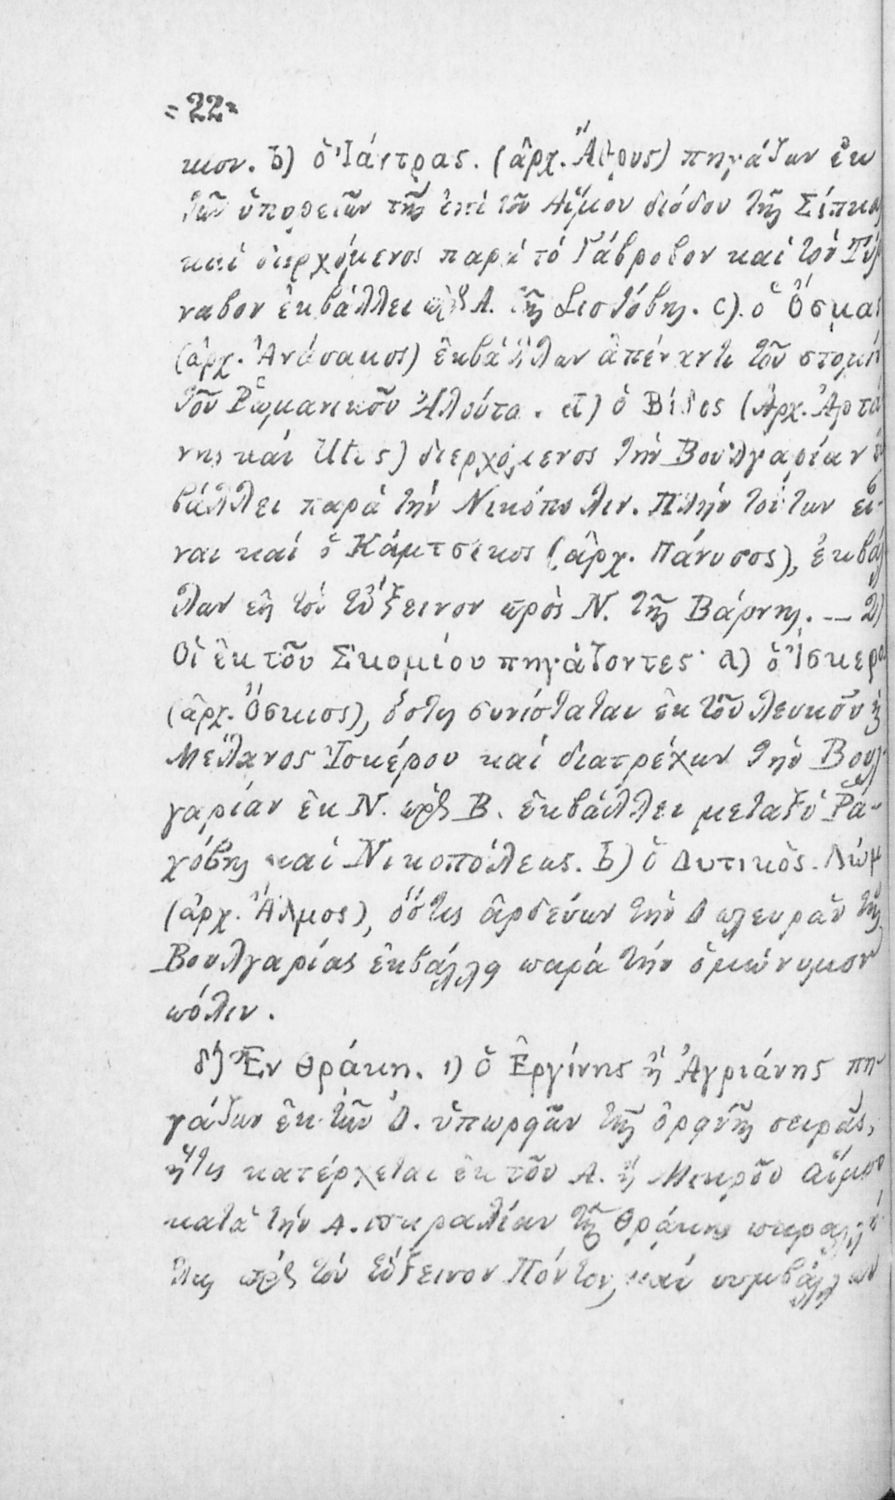 =22=
κιον. b) ὁ Ἰάντρας. (ἀρχ. Ἄθρυς) πηγάζων ἐκ
τῶν ὑπωρειῶν τῆς ἐπὶ τοῦ Αἵμου διόδου τῆς Σίπκας
καὶ διερχόμενος παρὰ τό Γάβροβον καὶ τόν Τύρ
ναβον ἐκβάλλει πρὸς Α. τῆς Σιστόβης. c). ὁ Ὄσμας
(ἀρχ. Ἀνάσαμος) ἐκβάλλων ἀπέναντι τοῦ στομίου
τοῦ Ρωμανικοῦ Ἀλούτα. d) ὁ Βίδος (Ἀρχ. Ἀρτά
νης καὶ Utus) διερχόμενος τὴν Βουλγαρίαν ἐκ
βάλλει παρὰ τὴν Νικόπολιν. Πλὴν τούτων εἶ-
ναι καὶ ὁ Κάμτσικος (ἀρχ. Πάνυσος), ἐκβάλ
λων εἰς τὸν Εὔξεινον πρὸς Ν. τῆς Βάρνης. — 2)
Οἱ ἐκ τοῦ Σκομίου πηγάζοντες· a) ὁ Ἴσκερος
(ἀρχ. Ὄσκιος), ὅστις συνίσταται ἐκ τοῦ Λευκοῦ ἢ
Μέλανος Ἰσκέρου καὶ διατρέχων τὴν Βουλ
γαρίαν ἐκ Ν. πρὸς Β. ἐκβάλλει μεταξὺ Ῥα-
χόβης καὶ Νικοπόλεως. b) ὁ Δυτικὸς Λώμ
(ἀρχ. Ἄλμος), ὅστις ἀρδεύων τὴν Δ πλευρὰν τῆς
Βουλγαρίας ἐκβάλλει παρά τήν ὁμώνυμον
πόλιν.
δ') Ἐν Θράκη. 1) ὁ Ἐργίνης ἢ Ἀγριάνης πη
γάζων ἐκ τῶν Δ. ὑπωρειῶν τῆς ὀρεινῆς σειρᾶς,
ἥτις κατέρχεται ἐκ τοῦ Α. ἢ Μικροῦ Αἵμου
κατὰ τὴν Α. παραλίαν τῆς Θράκης παραλλή
λως πρὸς τὸν Εὔξεινον Πόντον, καὶ συμβάλλων